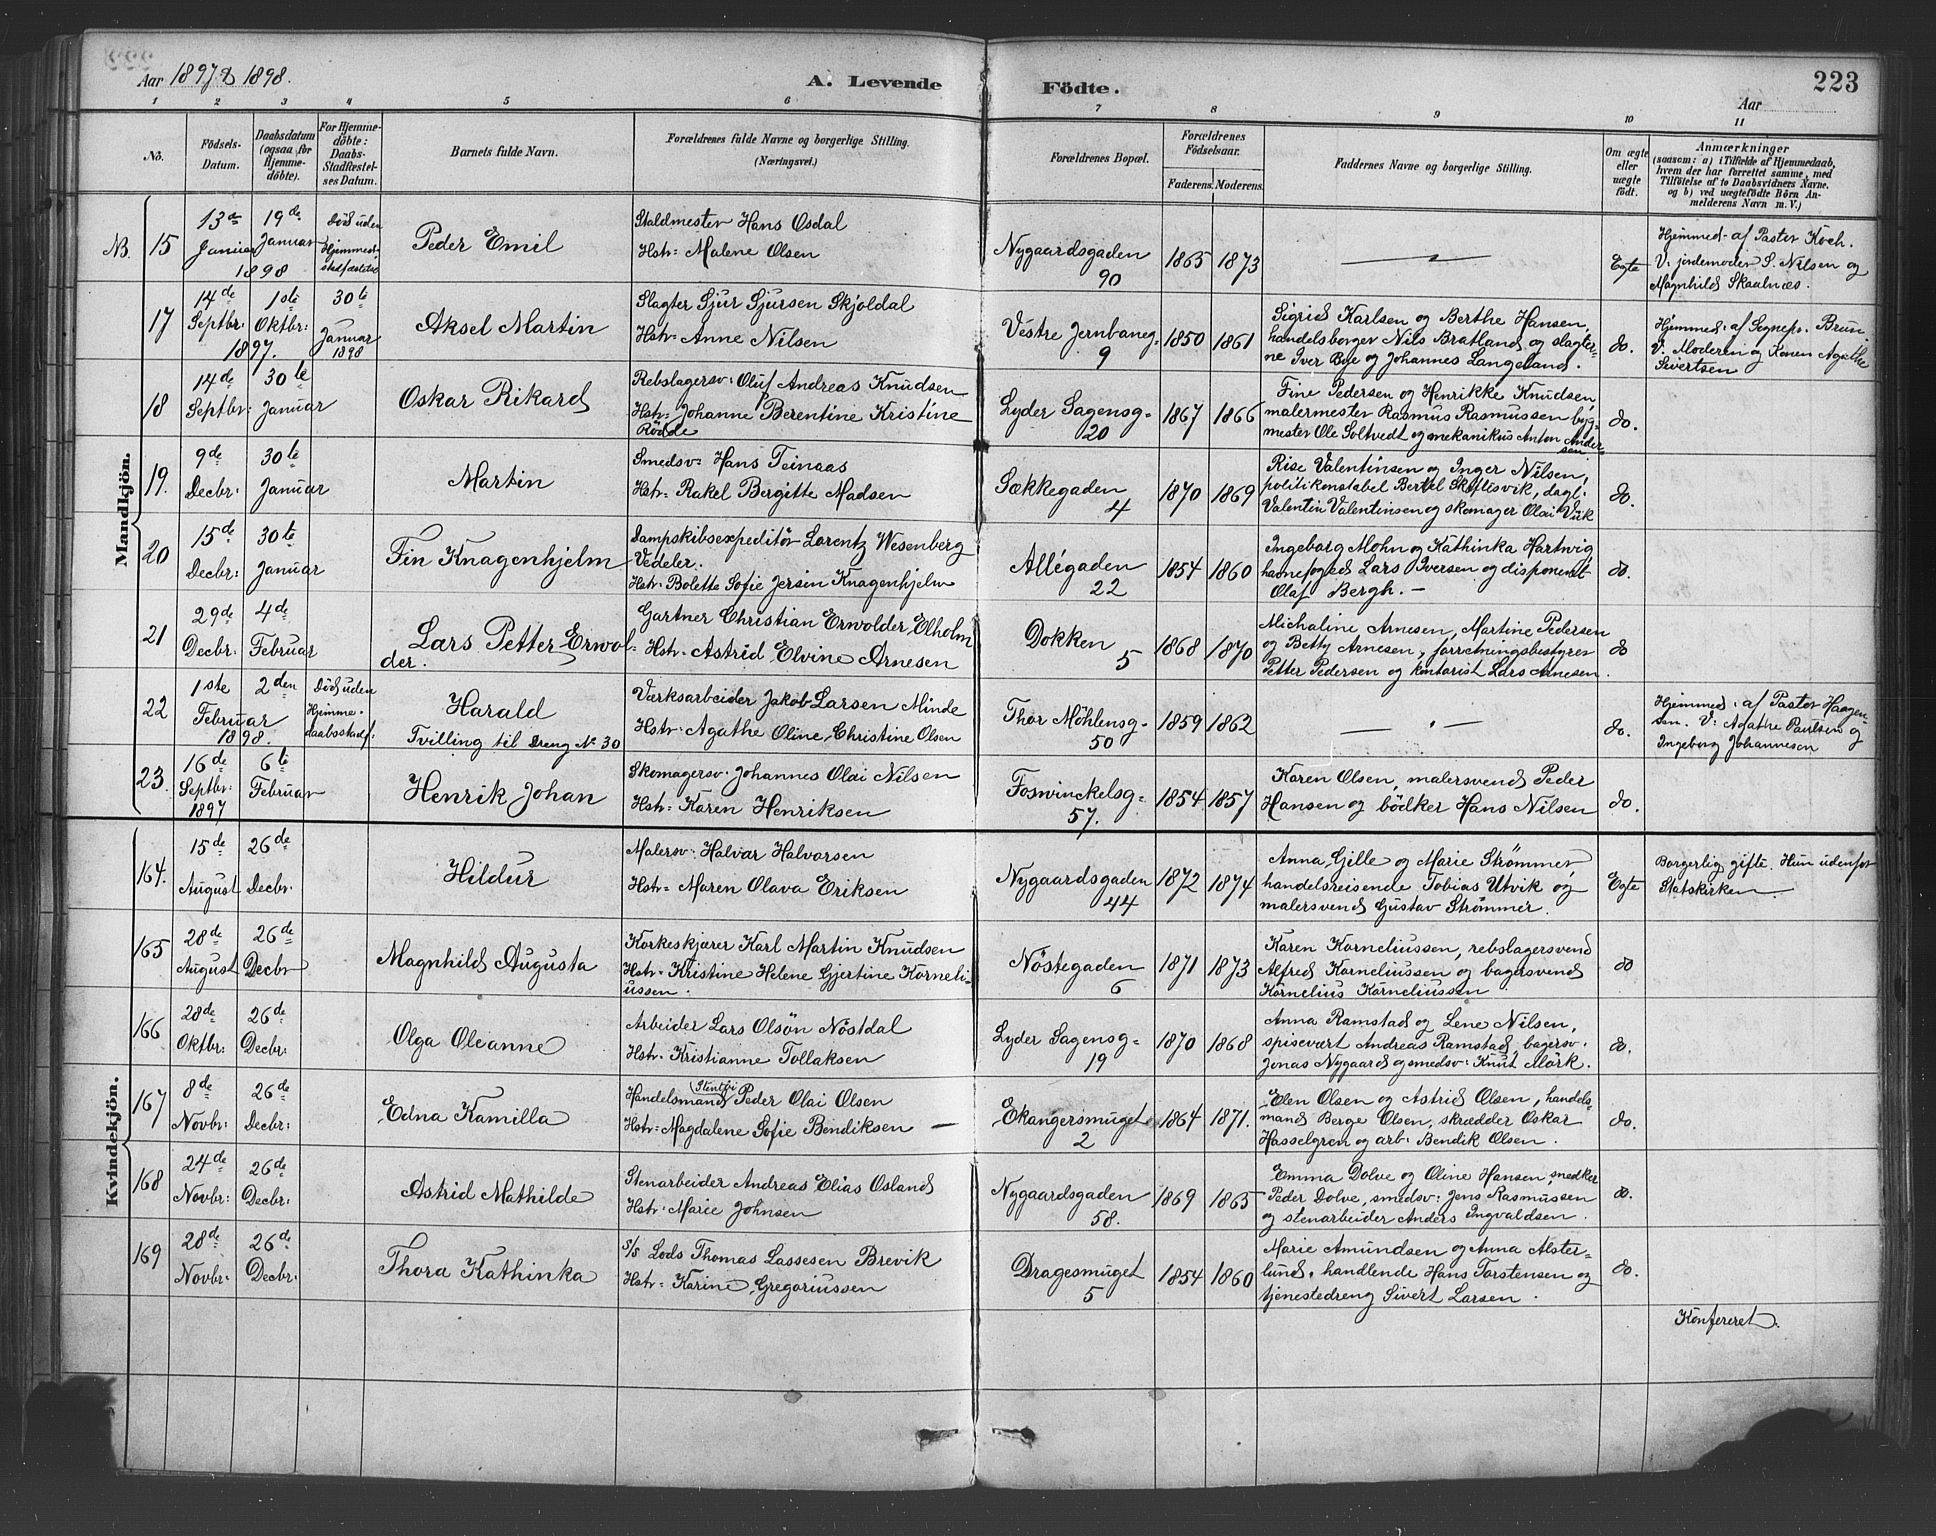 Aar 1897 & 1898.
A. Levende Födte.
223
Aar
1 2 3 4 5 6 7 8 9 10 11
No.
Födsels-Datum.
Daabsdatum (ogsaa for Hjemme-döbte).
For Hjemme-döbte: Daabs-Stadfæstel-ses Datum.
Barnets fulde Navn.
Forældrenes fulde Navne og borgerlige Stilling. (Næringsvei.)
Forældrenes Bopæl.
Forældrenes Födselsaar.
Faderens. Moderens.
Faddernes Navne og borgerlige Stilling.
Om ægte eller uægte födt.
Anmærkninger (saasom: a) i Tilfælde af Hjemmedaab, hvem der har forrettet samme, med Tilföielse af to Daabsvidners Navne, og b) ved uægtefödte Börn An-melderens Navn m. V.)
Mandkjön.
NB. 15 13de Januar 1898 19de Januar Död uden Hjemmed: stadfæstelse
Peder Emil
Staldmester Hans Osdal
Hstr: Malene Olsen
Nygaardsgaden 90
1865 1873
Egte
Hjemmed. af Pastor Koch.
V: jordemoder S. Nilsen og
Magnhild Skaalnes.
17 14de Septbr: 1897. 1ste Oktbr: 30te Januar 1898
Aksel Martin
Slagter Sjur Sjursen Skjoldal
Hstr: Anne Nilsen
Vestre Jernbaneg: 9
1850 1861
Sigrid Karlsen og Berthe Hansen,
handelsborger Nils Bratland og slagter-
ne Iver Bye og Johannes Langeland.
do.
Hjemmed: af Sognepr. Brun
V. Moderen og Konen Agathe
Sivertsen
18 14de Septbr: 30te Januar
Oskar Rikard
Rebslagersv: Oluf Andreas Knudsen
Hstr: Johanne Berentine Kristine
Rödde
Lyder Sagensg: 20
1867 1866
Fine Pedersen og Henrikke Knudsen,
malermester Rasmus Rasmussen byg-
mester Ole Soltvedt og mekanikus Anton Ander-
sen.
do.
19. 9de Decbr: 30te Januar
Martin
Smedsv: Hans Teinaas
Hstr: Rakel Bergitte Madsen
Sækkegaden 4
1870 1869
Rise Valentinsen og Inger Nilsen,
politikonstabel Bertel Skiftesvik, dagl.
Valentin Valentinsen og skomager Olai Vik
do.
20 15de Decbr: 30te Januar
Fin Knagenhjelm
Dampskibsexpeditör Lorentz Wesenberg
Vedeler.
Hstr: Bolette Sofie Jersin Knagenhjelm
Allégaden 22
1854 1860
Ingeborg Mohn og Kathinka Hartvig
havnefoged Lars Iversen og disponent
Olaf Bergh. —
do.
21 29de Decbr: 4de Februar
Lars Petter Erwol-
der.
Gartner Christian Erwolder, Elholm
Hstr: Astrid Elvine Arnesen
Dokken 5
1868 1870
Michaline Arnesen, Martine Pedersen
og Betty Arnesen, forretningsbestyrer
Petter Pedersen og kontorist Lars Arnesen.
do
22 1ste Februar 1898. 2den Februar Död uden Hjemme-daabsstadf:
Harald
Tvilling til Dreng No 30
Værksarbeider Jakob Larsen Minde
Hstr: Agathe Oline Christine Olsen
Thor Möhlensg: 50
1859 1862
do.
Hjemmed: af Pastor Haagen-
sen. V: Agathe Paulsen og
Ingeborg Johannesen
23. 16de Septbr: 1897 6te Februar
Henrik Johan
Skomagersv: Johannes Olai Nilsen
Hstr: Karen Henriksen
Foswinckelsg: 57.
1854 1857
Karen Olsen, malersvend Peder
Hansen og bödker Hans Nilsen
do.
Kvindekjön.
164. 15de August 26de Decbr.
Hildur
Malersv: Halvar Halvorsen
Hstr: Maren Olava Eriksen
Nygaardsgaden 44
1872 1874
Anna Gille og Marie Strømmer,
handelsreisende Tobias Utvik og
malersvend Gustav Strømmer.
Egte
Borgerlig gifte. Hun udenfor
Statskirken
165 28de August 26de Decbr
Magnhild Augusta
Korkeskjærer Karl Martin Knudsen
Hstr: Kristine Helene Gjertine Korneli-
ussen.
Nöstegaden 6
1871 1873
Karen Korneliussen, rebslagersvend
Alfred Korneliussen og bagersvend
Kornelius Korneliussen
do
166 28de Oktbr: 26de Decbr:
Olga Oleanne
Arbeider Lars Olsön Nöstdal
Hstr: Kristianne Tollaksen
Lyder Sagensg: 19
1870 1868
Anna Ramstad og Lene Nilsen,
spisevært Andreas Ramstad, bagersv.
Jonas Nygaard og smedsv: Knut Mörk.
do.
167 8de Novbr: 26de Decbr:
Edna Kamilla
Handelsmand Peder Olai Olsen
Hstr: Magdalene Sofie Bendiksen —
Ekangersmuget 2
1864 1871.
Elen Olsen og Astrid Olsen, handels-
mand Berge Olsen, skrædder Oskar
Hasselgren og arb: Bendik Olsen.
do.
168 24de Novbr: 26de Decbr:
Astrid Mathilde
Stenarbeider Andreas Elias Osland
Hstr: Marie Johnsen
Nygaardsgaden 58.
1869 1865
Emma Dolve og Oline Hansen, snedker
Peder Dolve, smedsv: Jens Rasmussen
og stenarbeider Anders Ingvaldsen.
do.
169 28de Novbr: 26de Decbr:
Thora Kathinka
S/S Lods Thomas Lassesen Brevik
Hstr: Karine Gregoriussen
Dragesmuget 5
1854 1860
Marie Amundsen og Anna Alster-
lund, handlende Hans Torstensen og
tjenestedreng Sivert Larsen.
do.
Konfereret.